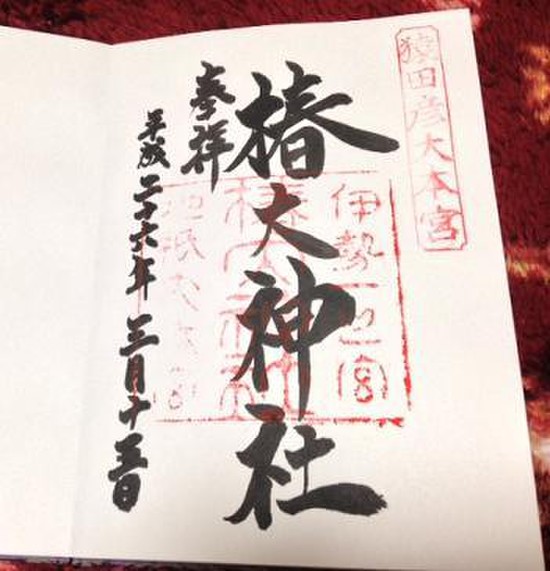 猿田彦大本宮
伊勢一之宮
椿大神社
椿大神社
地祇大本宮
奉拝
平成二十六年 三月十五日